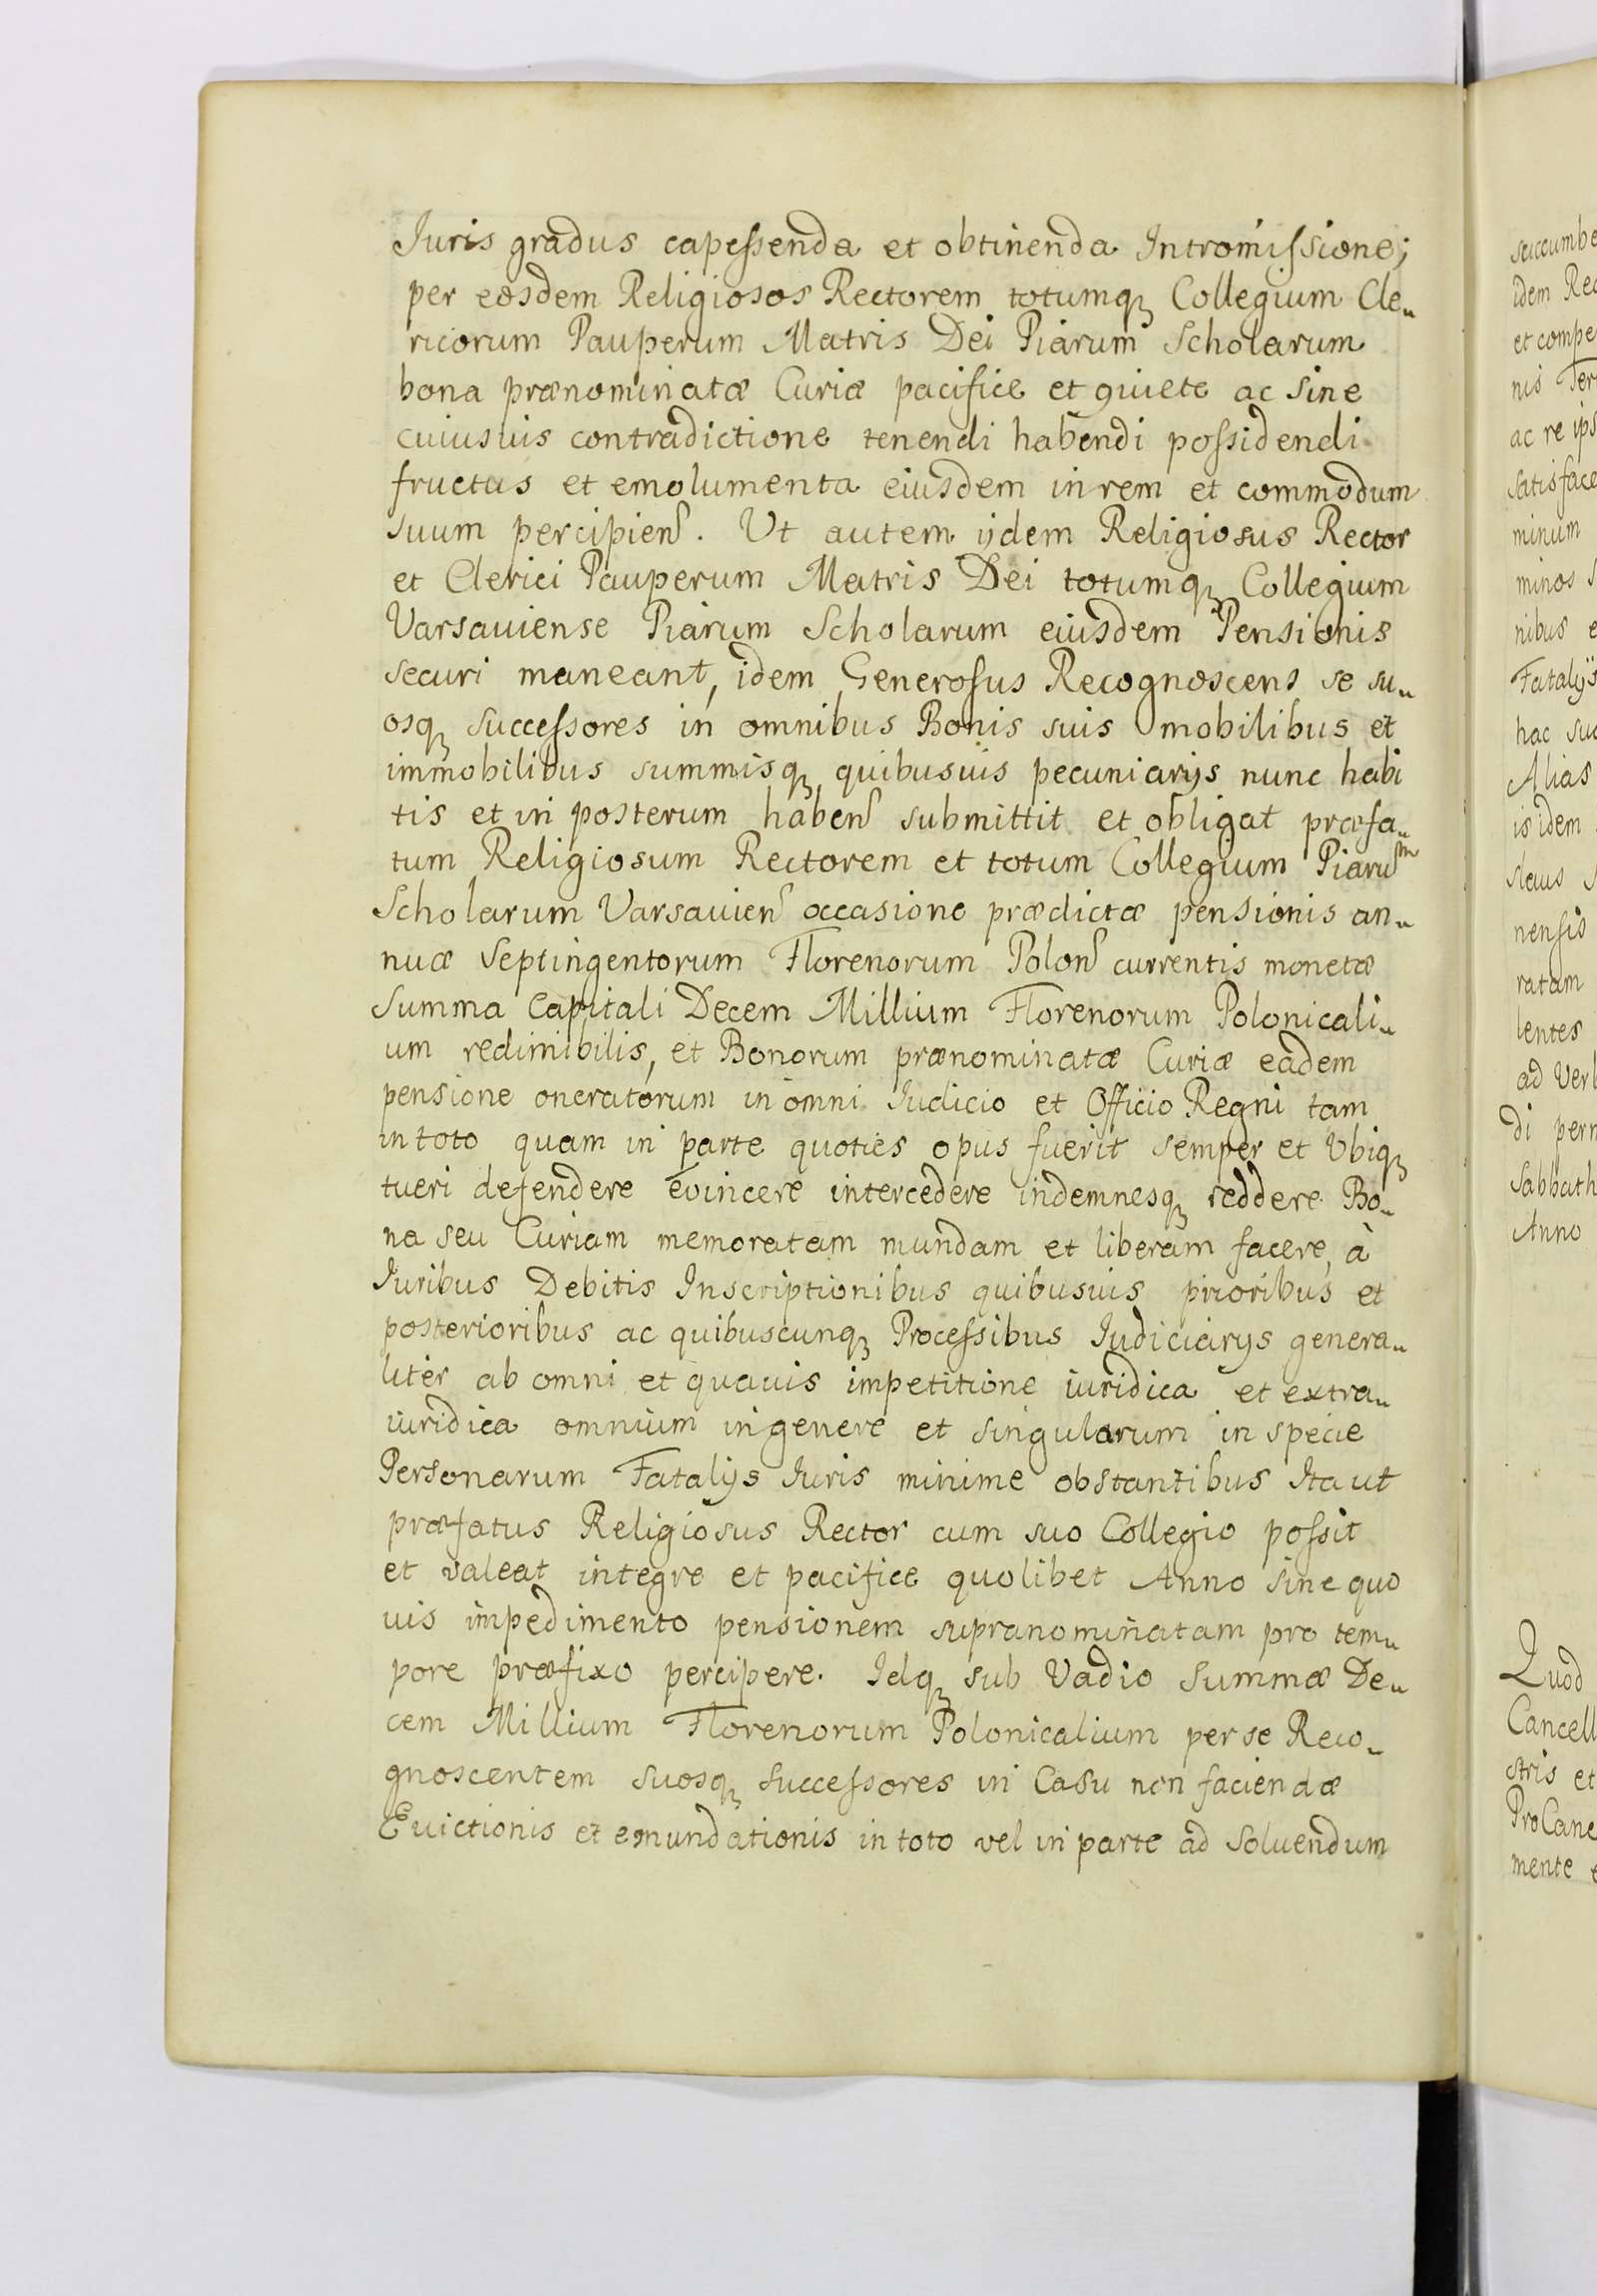 Iuris gradus capessenda et obtinenda Intromissione;
per eosdem Religiosos Rectorem totumq₃ Collegium Cle„
ricorum Pauperum Matris Dei Piarum Scholarum
bona prænominatæ Curiæ pacifice et quiete ac sine
cuiusuis contradictione tenendi habendi possidendi
fructus et emolumenta eiusdem in rem et commodum
suum percipien. Ut autem ijdem Religiosus Rector
et Clerici Pauperum Matris Dei totumq₃ Collegium
Varsauiense Piarum Scholarum eiusdem Pensionis
securi maneant, idem Generosus Recognoscens se su„
osq₃ successores in omnibus Bonis suis mobilibus et
immobilibus summisq₃ quibusuis pecuniarijs nunc habi
tis et in posterum haben submittit et obligat præfa„
tum Religiosum Rectorem et totum Collegium Piaruᵐ
Scholarum Varsauien occasione prædictæ pensionis an„
nuæ Septingentorum Florenorum Polon currentis monetæ
Summa Capitali Decem Millium Florenorum Polonicali„
um redimibilis, et Bonorum prænominatæ Curiæ eadem
pensione oneratorum in omni Iudicio et Officio Regni tam
in toto quam in parte quoties opus fuerit semper et Ubiq₃
tueri defendere evincere intercedere indemnesq₃ reddere Bo„
na seu Curiam memoratam mundam et liberam facere, à
Iuribus Debitis Inscriptionibus quibusuis prioribus et
posterioribus ac quibuscunq₃ Processibus Iudiciarijs genera„
liter ab omni et quauis impetitione iuridica et extra„
iuridica omnium in genere et singularum in specie
Personarum Fatalijs Iuris minime obstantibus Ita ut
præfatus Religiosus Rector cum suo Collegio possit
et valeat integre et pacifice quolibet Anno sine quo
uis impedimento pensionem supranominatam pro tem„
pore præfixo percipere. Idq₃ sub Vadio Summæ De„
cem Millium Florenorum Polonicalium per se Reco„
gnoscentem suosq₃ successores in Casu non faciendæ
Euictionis et emundationis in toto vel in parte ad Soluendum
succumbe
idem Rec
et compe
nis Ter
ac re ips
satisface
minum
minos s
nibus e
Fatalijs
hac suc
Alias
is idem
slaus
nensis
ratam
lentes
ad Verb
di perm
Sabbath
Anno
Quod
Cancell
stris et
ProCanc
mente e